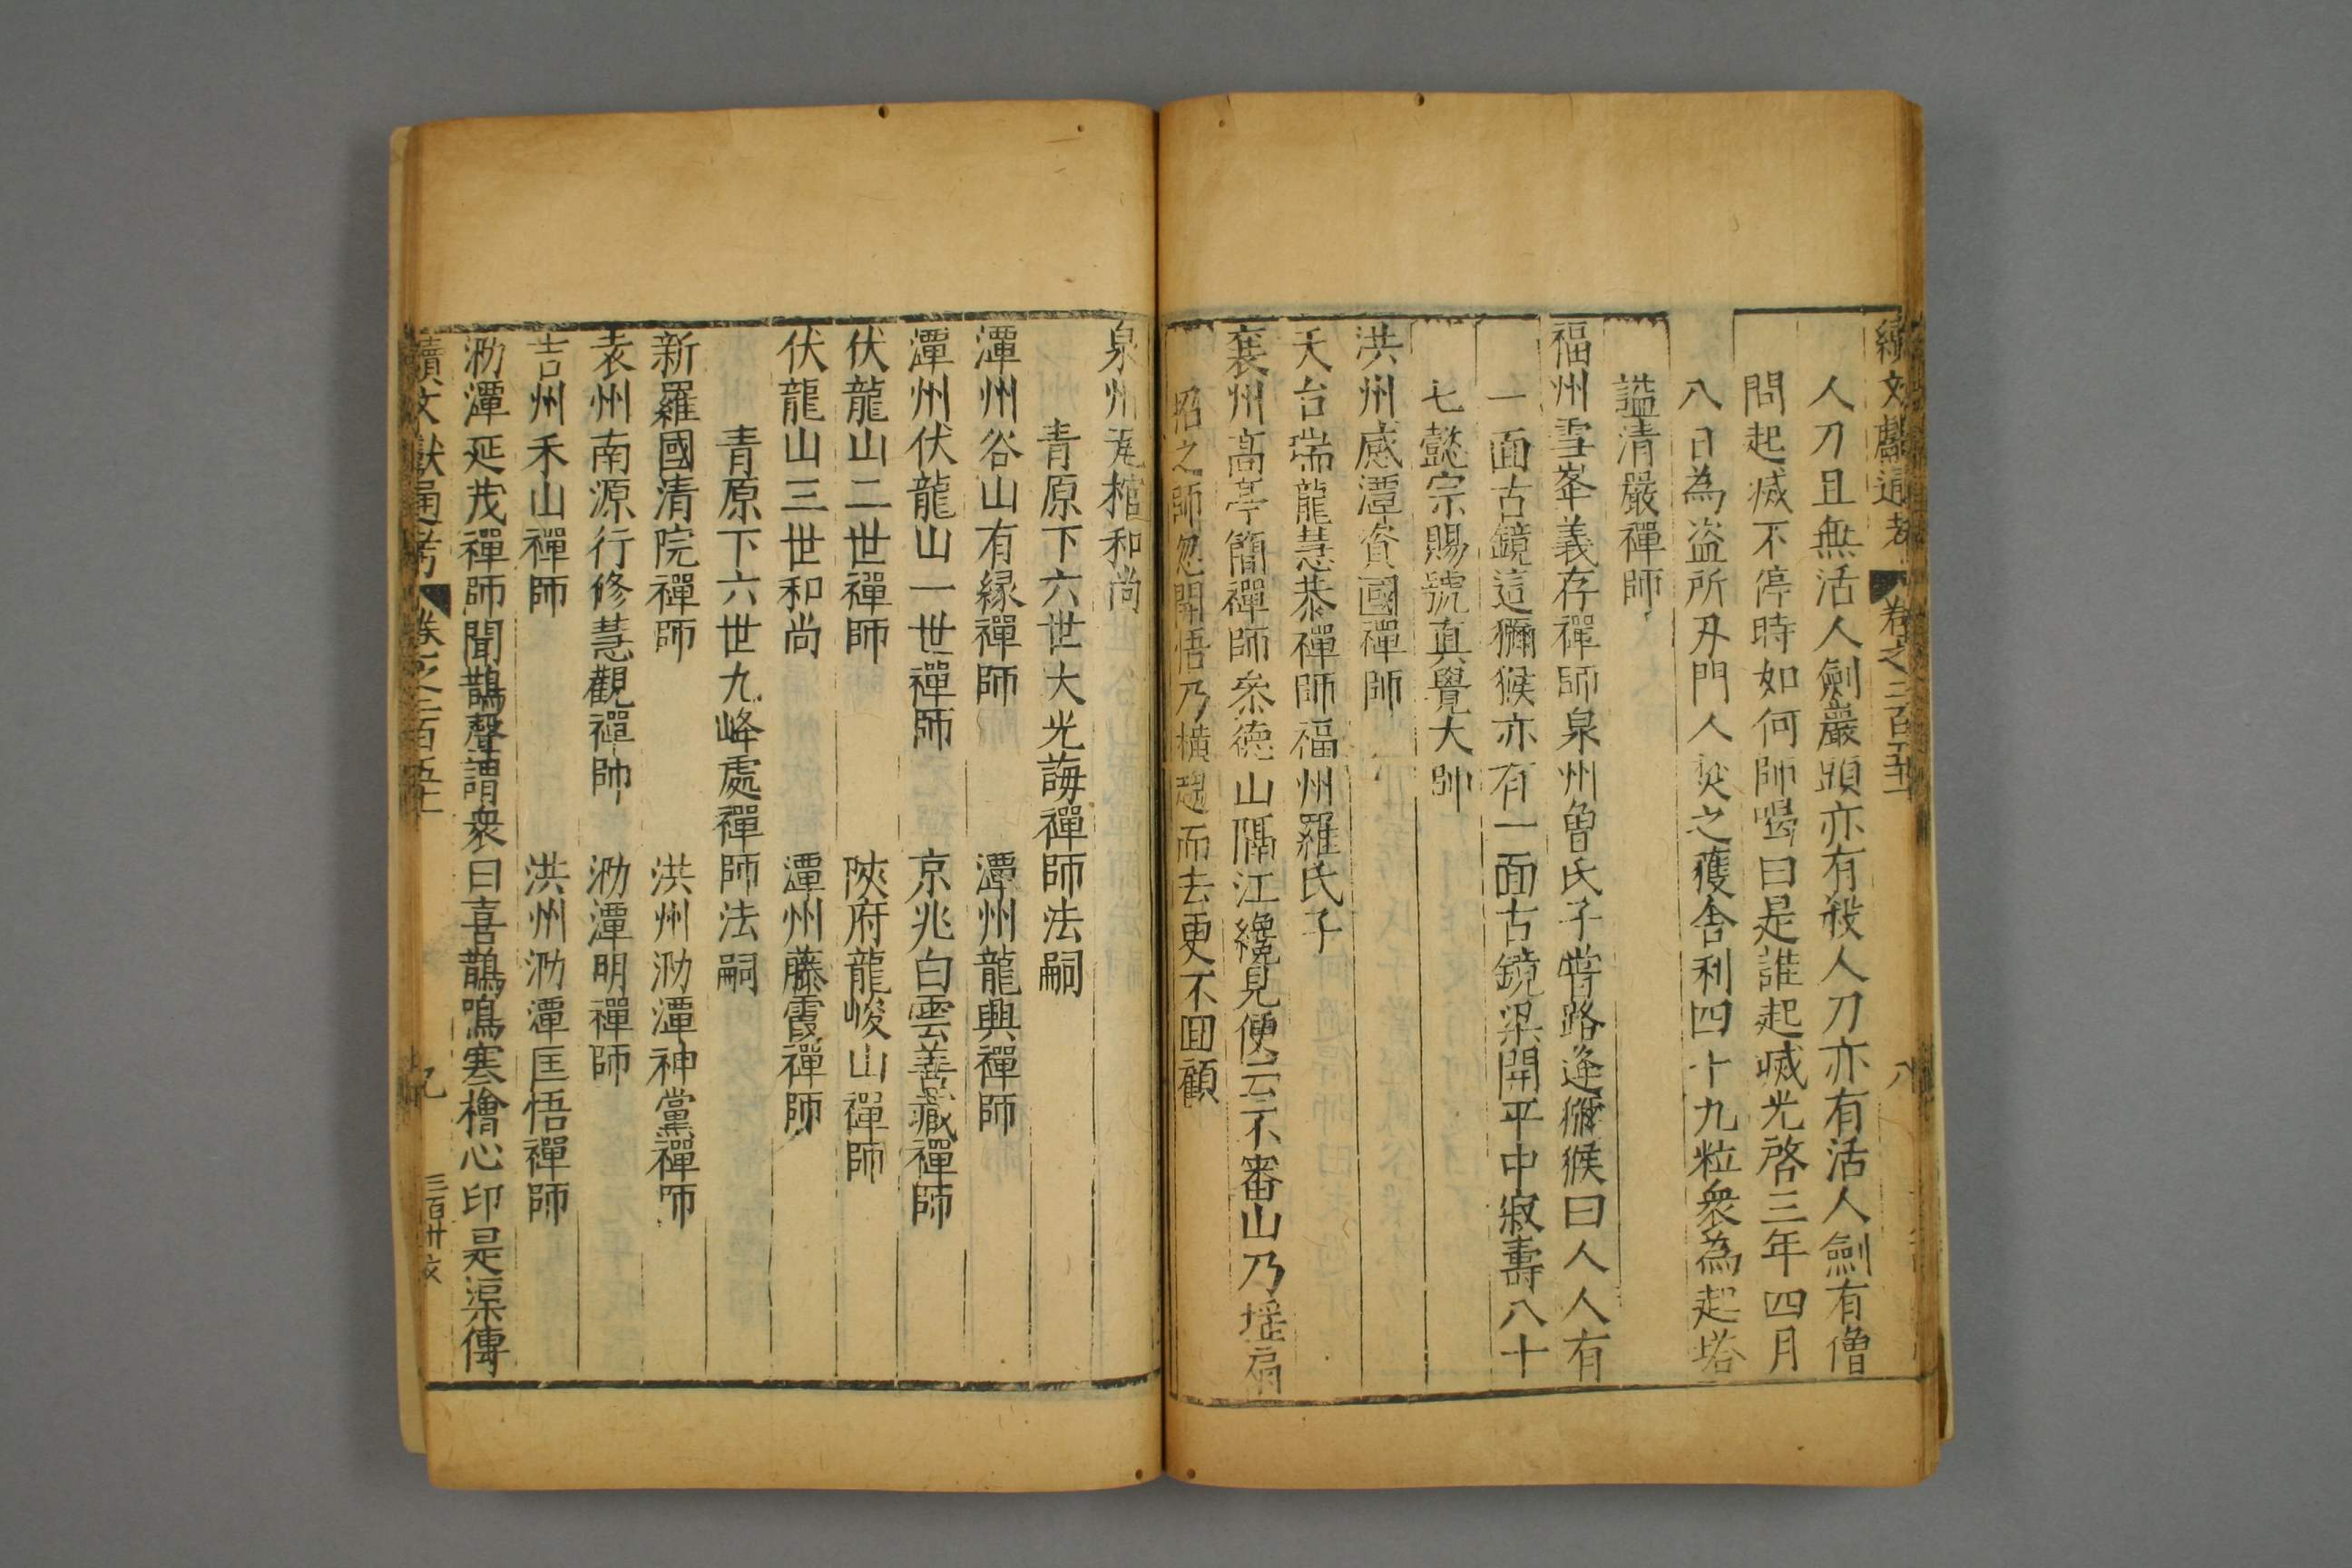 續文獻通考 卷之二百五十二 八
人刀且無活人劍巖頭亦有殺人刀亦有活人劍有僧
問起滅不停時如何師喝曰是誰起滅光啓三年四月
八日為盗所刃門人焚之獲舍利四十九粒衆為起塔
謚清嚴禪師
福州雪峯義存禪師泉州曾氏子嘗路逢獼猴曰人人有
一面古鏡這獼猴亦有一面古鏡梁開平中寂壽八十
七懿宗賜號真覺大師
洪州感潭資國禪師
天台瑞龍慧恭禪師福州羅氏子
襄州高亭簡禪師叅德山隔江纔見便云不審山乃揺扇
招之師忽開悟乃橫趨而去更不回顧
泉州瓦棺和尚
青原下六世大光誨禪師法嗣
潭州谷山有緣禪師 潭州龍興禪師
潭州伏龍山一世禪師 京兆白雲善藏禪師
伏龍山二世禪師 陝府龍峻山禪師
伏龍山三世和尚 潭州藤霞禪師
青原下六世九峰處禪師法嗣
新羅國清院禪師 洪州泐潭神黨禪師
袁州南源行修慧觀禪師 泐潭明禪師
吉州禾山禪師 洪州泐潭匡悟禪師
泐潭延茂禪師聞鵲聲謂衆曰喜鵲鳴寒檜心印是渠傳
續文獻通考 卷之二百五十二 九 三百卅